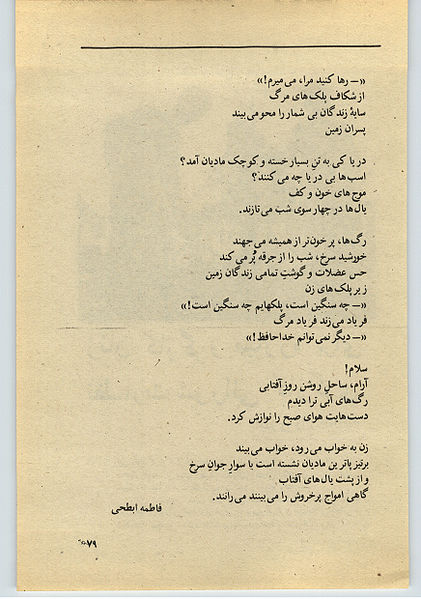 «— رها کنید مرا، می‌میرم!»
از شکاف پلک‌های مرگ
سایهٔ زندگان بی شمار را محو می‌بیند
پسران زمین
دریا کی به تن بسیار خسته و کوچک مادیان آمد؟
اسب‌ها بی دریا چه می‌کنند؟
موج‌های خون و کف
یال‌ها در چهار سوی شب می‌تازند.
رگ‌ها، پر خون‌تر از همیشه می‌جهند
خورشید سرخ، شب را از جرقه پُر می‌کند
حس عضلات و گوشتِ تمامی زندگان زمین
زیر پلک‌های زن
«— چه سنگین است، پلکهایم چه سنگین است!»
فریاد می‌زند فریاد مرگ
«— دیگر نمی‌توانم خداحافظ!»
سلام!
آرام، ساحلِ روشن روزِ آفتابی
رگ‌های آبی ترا دیدم
دست‌هایت هوای صبح را نوازش کرد.
زن به خواب می‌رود، خواب می‌بیند
بر تیزپاترین مادیان نشسته است با سوارِ جوانِ سرخ
و از پشت یال‌های آفتاب
گاهی امواج پرخروش را می‌بینند می‌رانند.
فاطمه ابطحی
۷۹